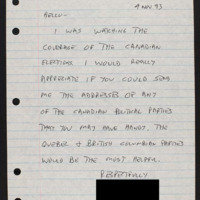 4 NOV 93
HELLO-
I WAS WATCHING THE
COVERAGE OF THE CANADIAN
ELECTIONS. I WOULD REALLY
APPRECIATE IF YOU COULD SEND
ME THE ADDRESSES OF ANY
OF THE CANADIAN POLITICAL PARTIES
THAT YOU MAY HAVE HANDY. THE
QUEBEC & BRITISH COLUMBIA PARTIES
WOULD BE THE MOST HELPFUL.
RESPECTFULLY